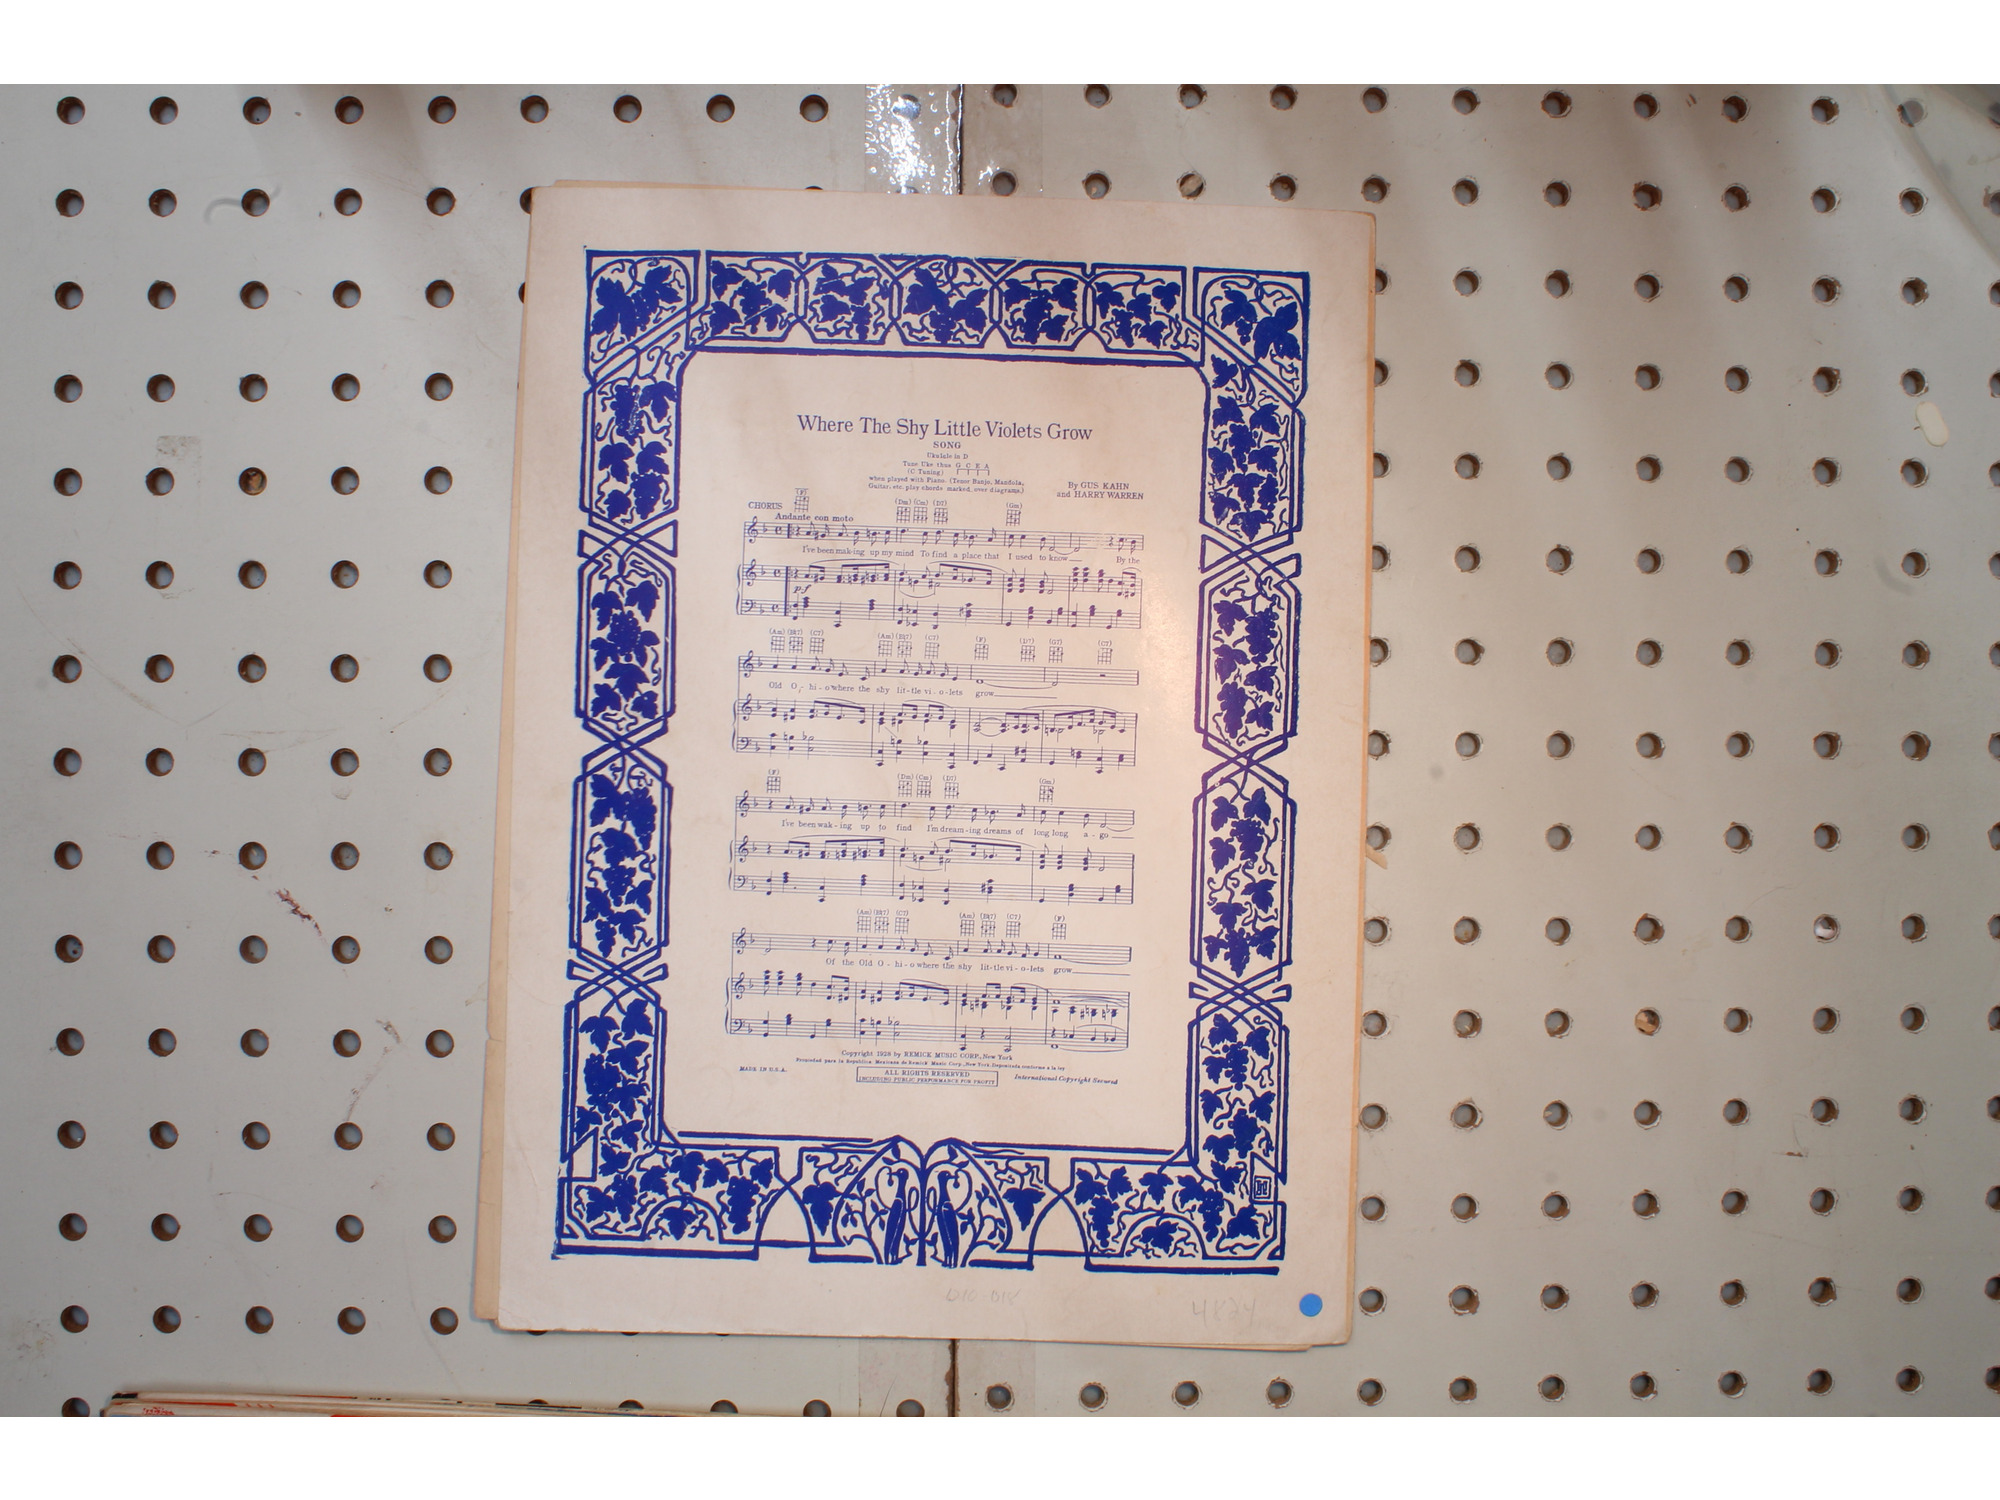 Where The Shy Little Violets Grow
SONG
Ukulele in D
Tune Uke thus G C E A
(C Tuning)
when played with Piano. (Tenor Banjo, Mandola,
Guitar, etc. play chords marked, over diagrams.)
By GUS KAHN
and HARRY WARREN
CHORUS
(F) (Dm) (Cm) (D7) (Gm)
Andante con moto
I've been mak-ing up my mind To find a place that I used to know By the
p-f
(Am) (B♭7) (C7) (Am) (B♭7) (C7) (F) (D7) (G7) (C7)
Old O-hi-o where the shy lit-tle vi-o-lets grow
(F) (Dm) (Cm) (D7) (Gm)
I've been wak-ing up to find I'm dream-ing dreams of long long a-go
(Am) (B♭7) (C7) (Am) (B♭7) (C7) (F)
Of the Old O-hi-o where the shy lit-tle vi-o-lets grow
Copyright 1928 by REMICK MUSIC CORP., New York
Propiedad para la Republica Mexicana de Remick Music Corp., New York Depositada conforme a la ley
MADE IN U.S.A.
ALL RIGHTS RESERVED
INCLUDING PUBLIC PERFORMANCE FOR PROFIT
International Copyright Secured
4824